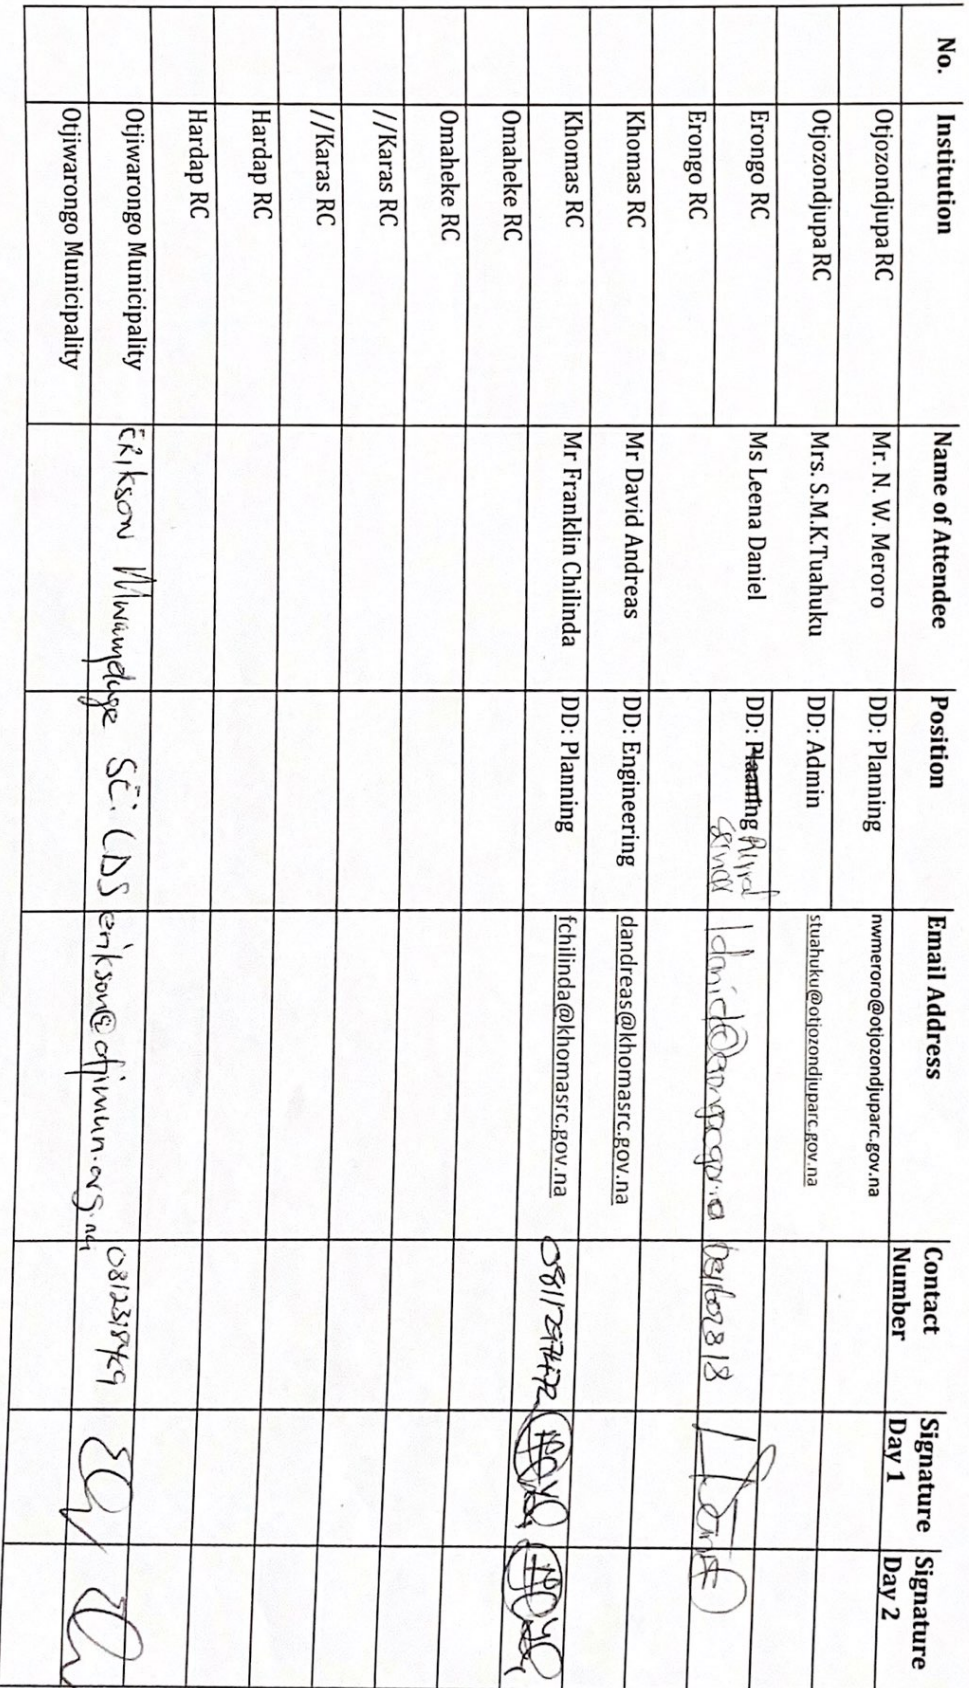 No. Institution Name of Attendee Position Email Address Contact Number Signature Day 1 Signature Day 2
Otjozondjupa RC Mr. N. W. Meroro DD: Planning nwmeroro@otjozondjuparc.gov.na
Otjozondjupa RC Mrs. S.M.K.Tuahuku DD: Admin stuahuku@otjozondjuparc.gov.na
Erongo RC Ms Leena Daniel DD: Planning Rural
Erongo RC
Khomas RC Mr David Andreas DD: Engineering dandreas@khomasrc.gov.na
Khomas RC Mr Franklin Chilinda DD: Planning fchilinda@khomasrc.gov.na
Omaheke RC
Omaheke RC
//Karas RC
//Karas RC
Hardap RC
Hardap RC
Otjiwarongo Municipality Erikson erikson@otjimun.org.na
Otjiwarongo Municipality